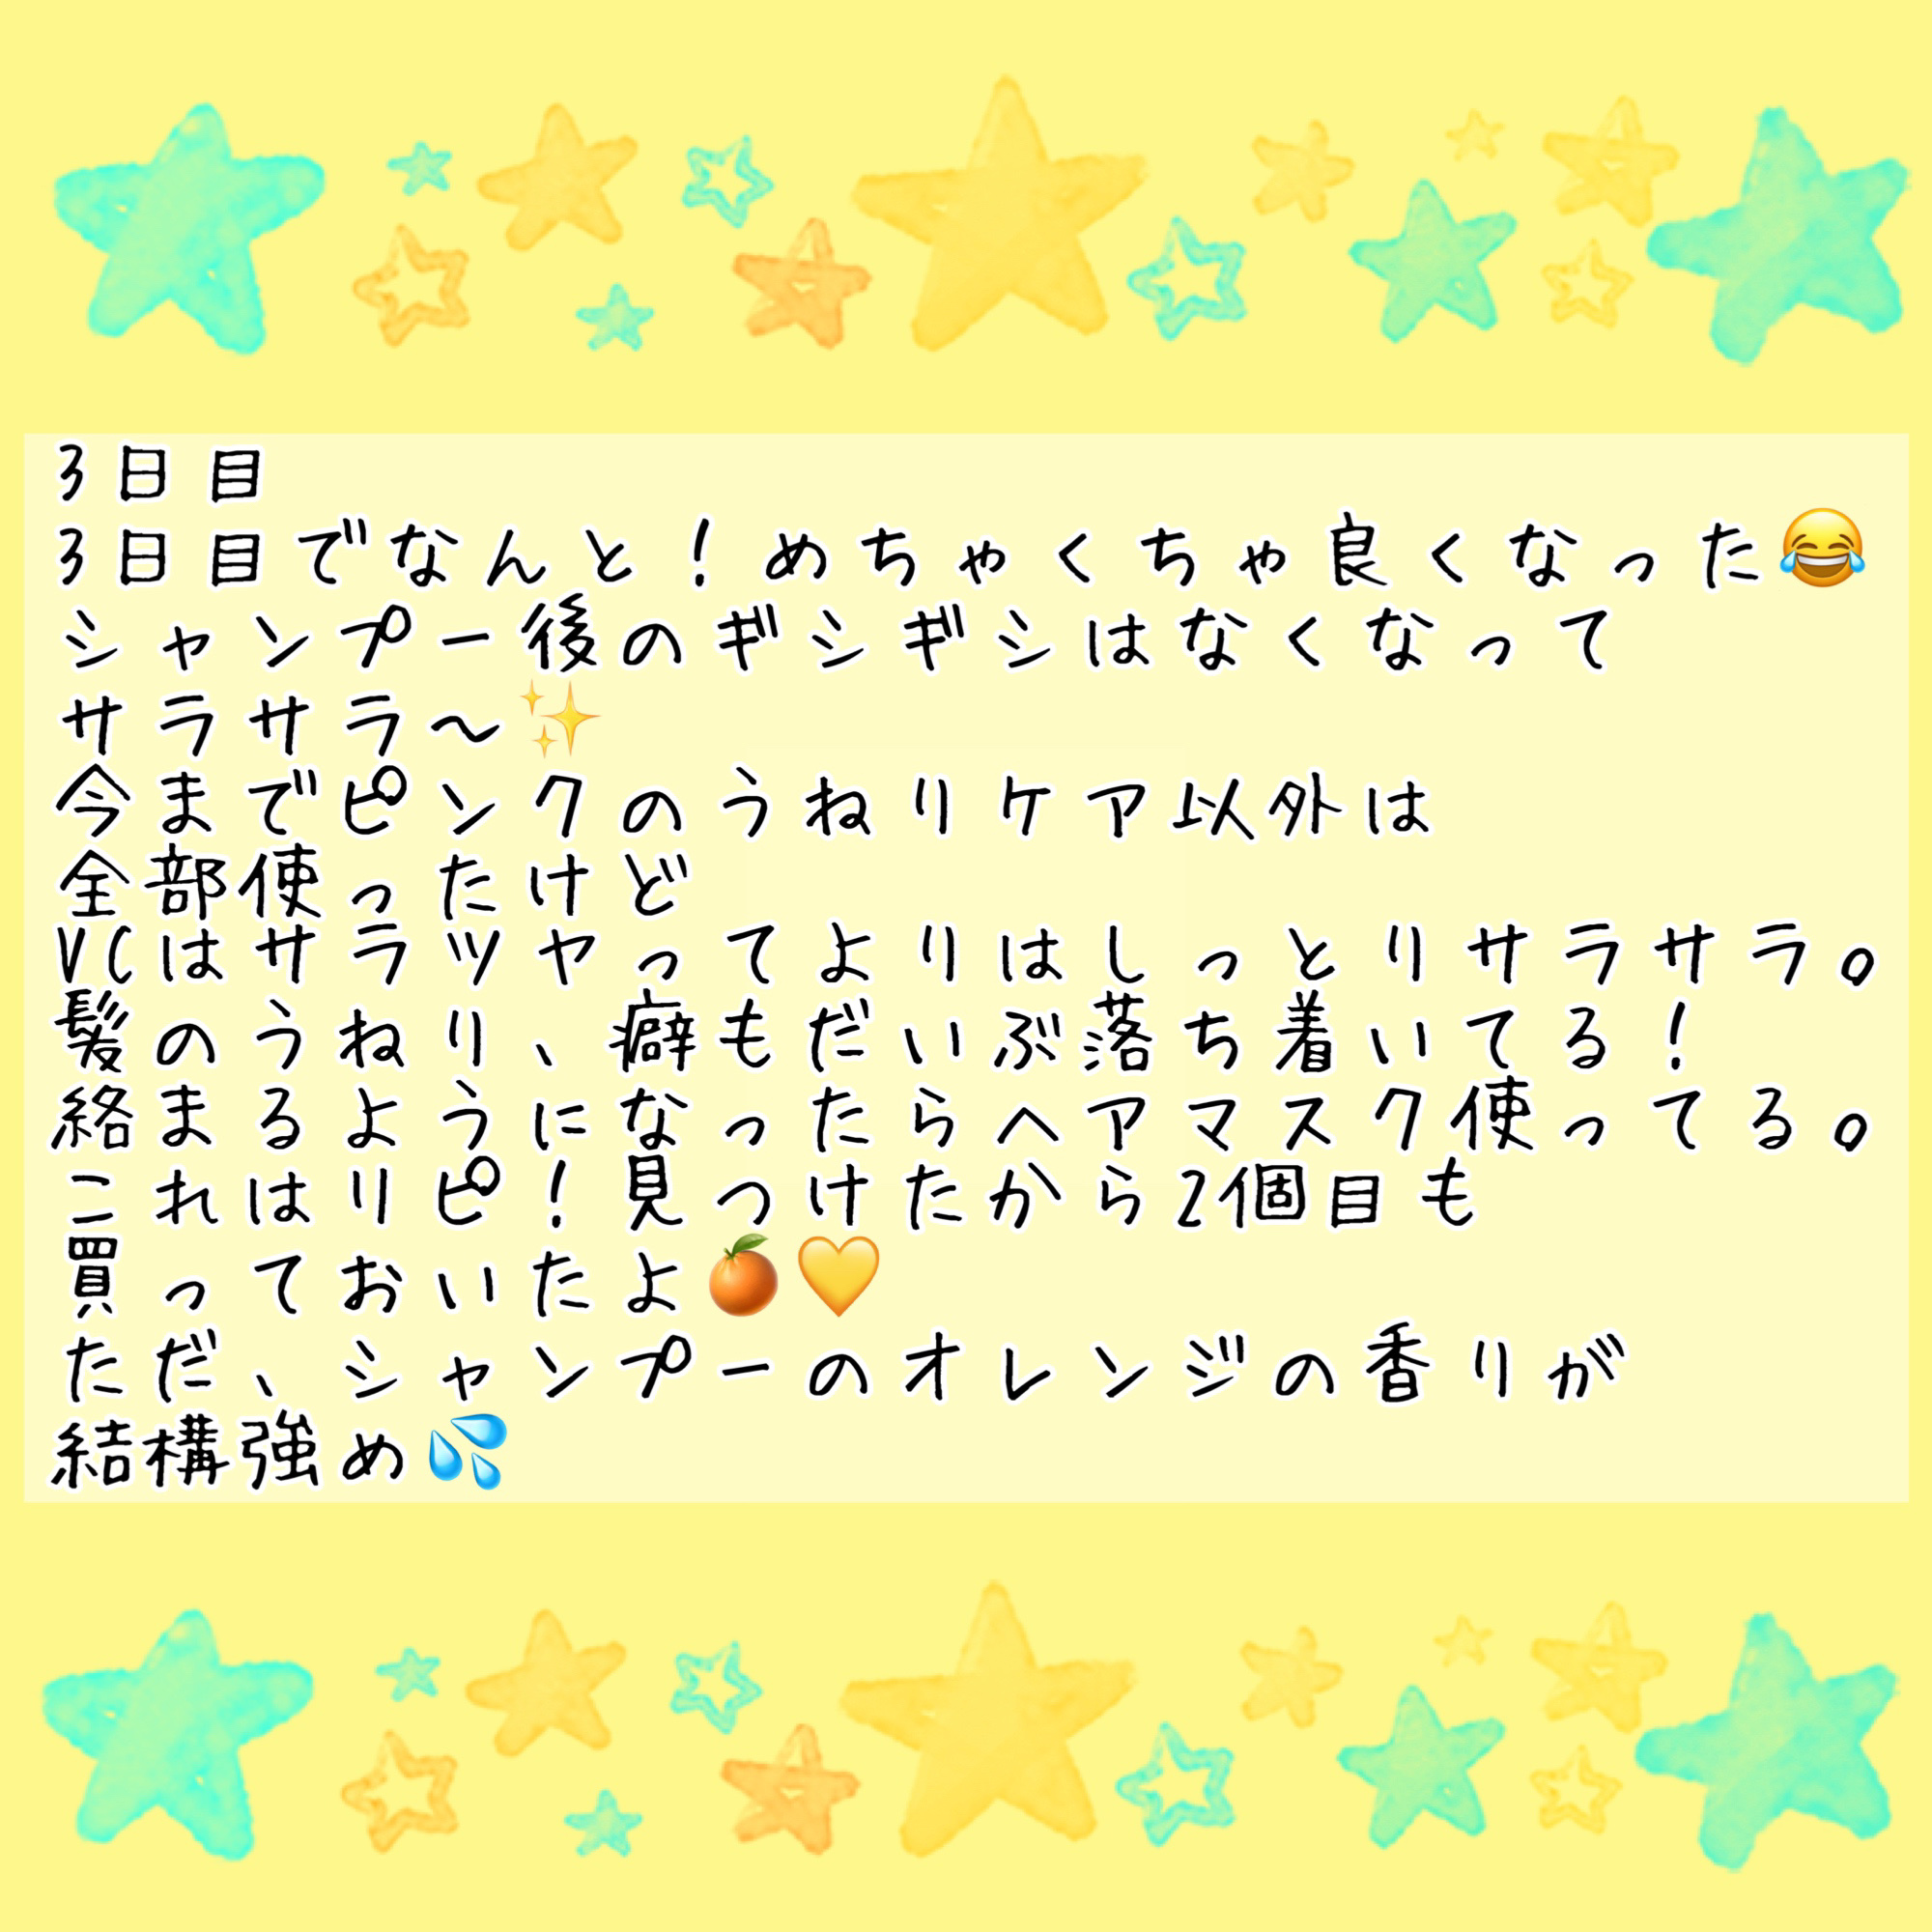 3日目
3日目でなんと！めちゃくちゃ良くなった😂
シャンプー後のギシギシはなくなって
サラサラ～✨
今までピンクのうねりケア以外は
全部使ったけど
VCはサラツヤってよりはしっとりサラサラ。
髪のうねり、癖もだいぶ落ち着いてる！
絡まるようになったらヘアマスク使ってる。
これはリピ！見つけたから2個目も
買っておいたよ🍊💛
ただ、シャンプーのオレンジの香りが
結構強め💦